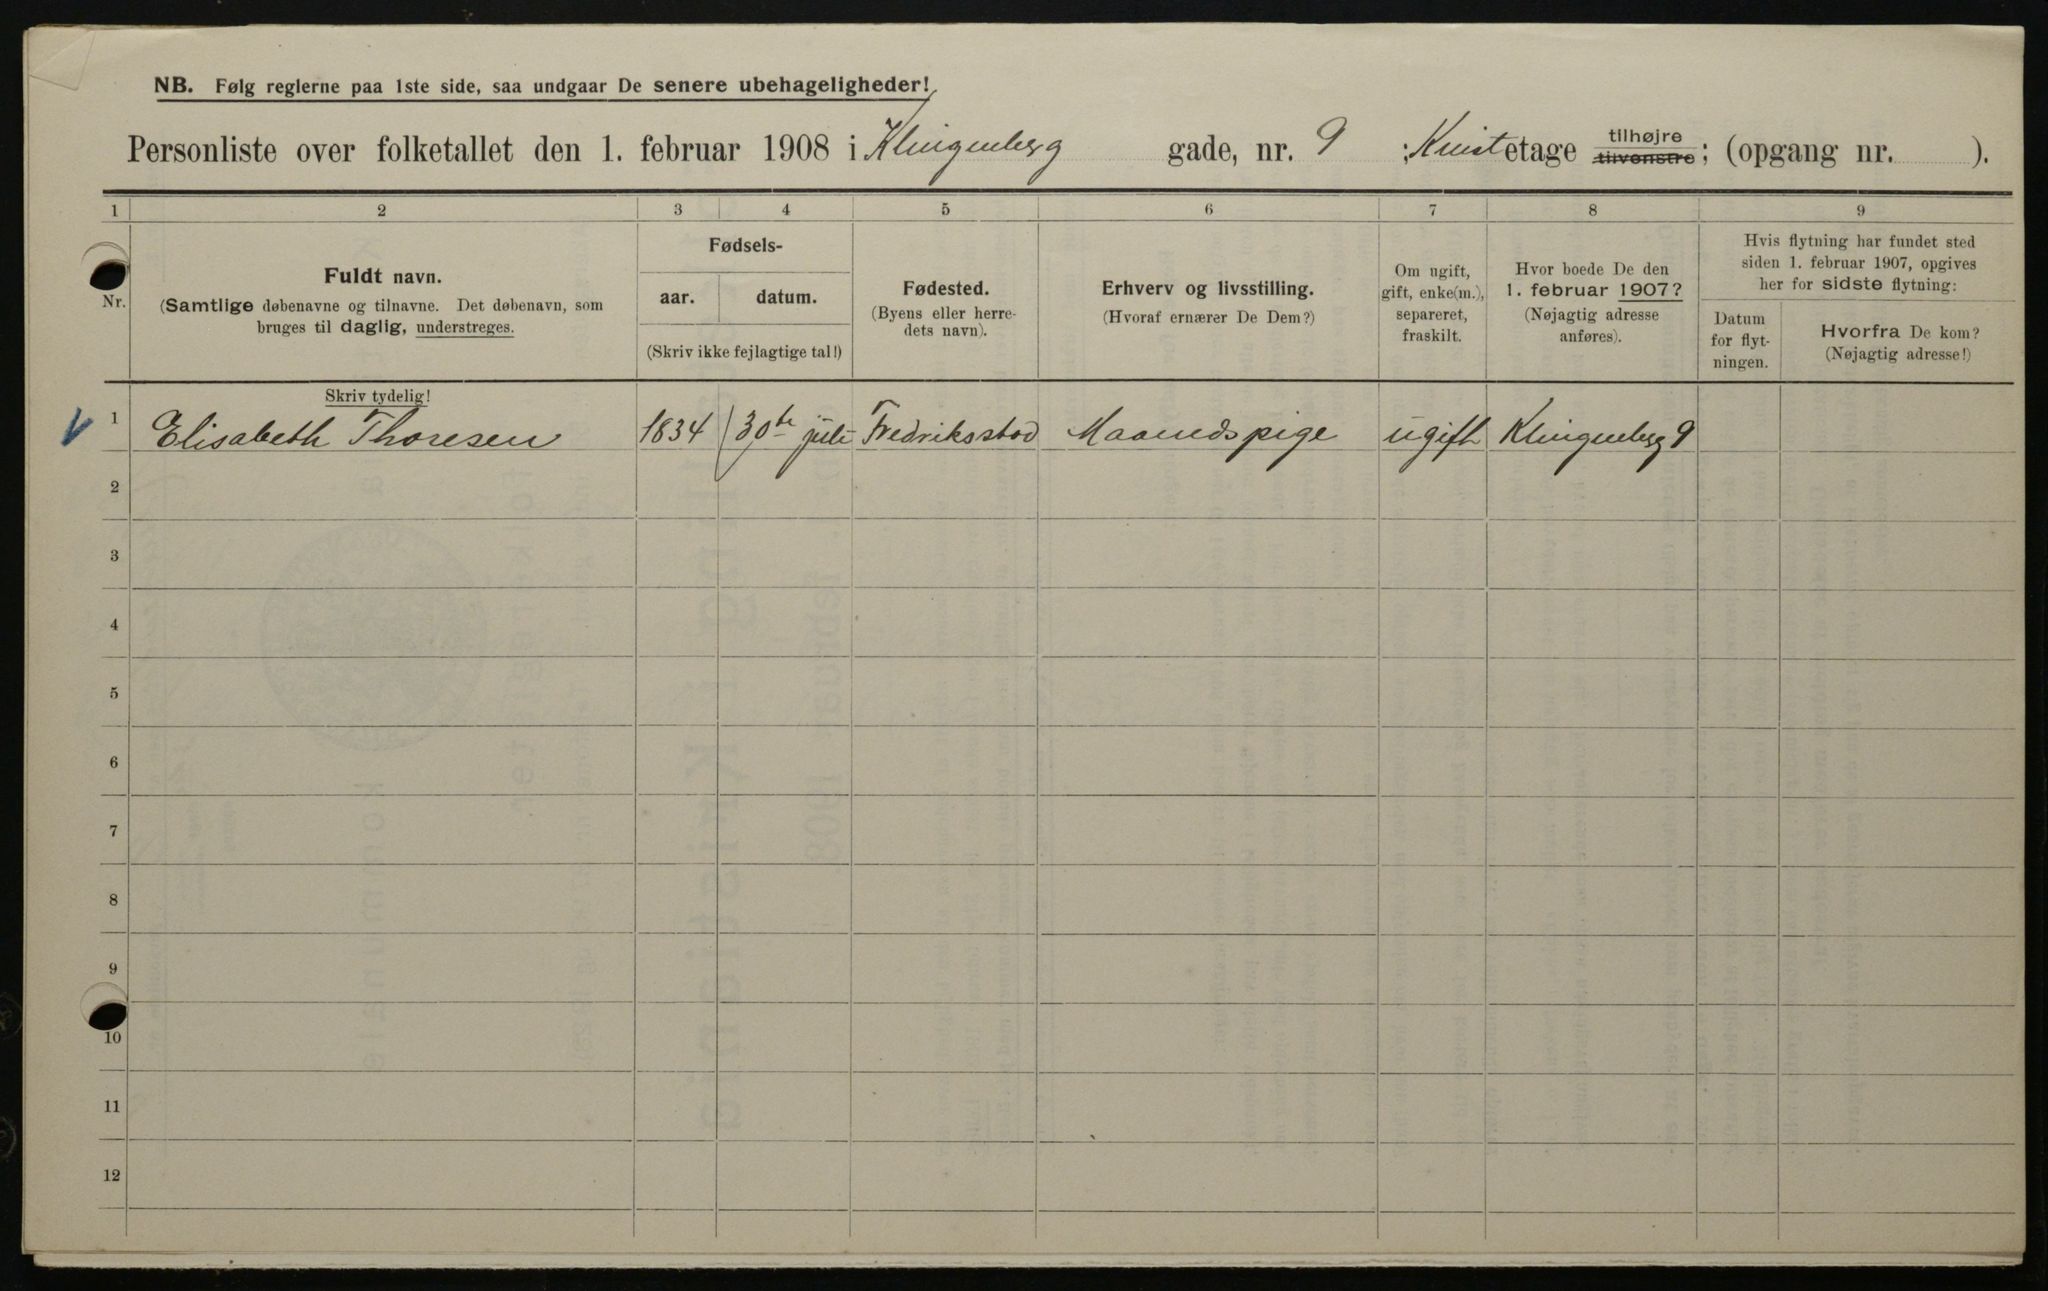 NB. Følg reglerne paa 1ste side, saa undgaar De senere ubehageligheder!
Personliste over folketallet den 1. februar 1908 i Klingenberg gade, nr. 9 ; Kvist etage tilhøjre tilvenstre; (opgang nr. ).
1 2 3 4 5 6 7 8 9
Nr.
Fuldt navn.
(Samtlige døbenavne og tilnavne. Det døbenavn, som
bruges til daglig, understreges.
Fødsels-
aar. datum.
(Skriv ikke fejlagtige tal!)
Fødested.
(Byens eller herre-
dets navn).
Erhverv og livsstilling.
(Hvoraf ernærer De Dem?)
Om ugift,
gift, enke(m.),
separeret,
fraskilt.
Hvor boede De den
1. februar 1907?
(Nøjagtig adresse
anføres).
Hvis flytning har fundet sted
siden 1. februar 1907, opgives
her for sidste flytning:
Datum
for flyt-
ningen.
Hvorfra De kom?
(Nøjagtig adresse!)
Skriv tydelig!
1 Elisabeth Thoresen 1834 30te juli Fredriksstad Maanedspige ugift Klingenberg 9
2
3
4
5
6
7
8
9
10
11
12